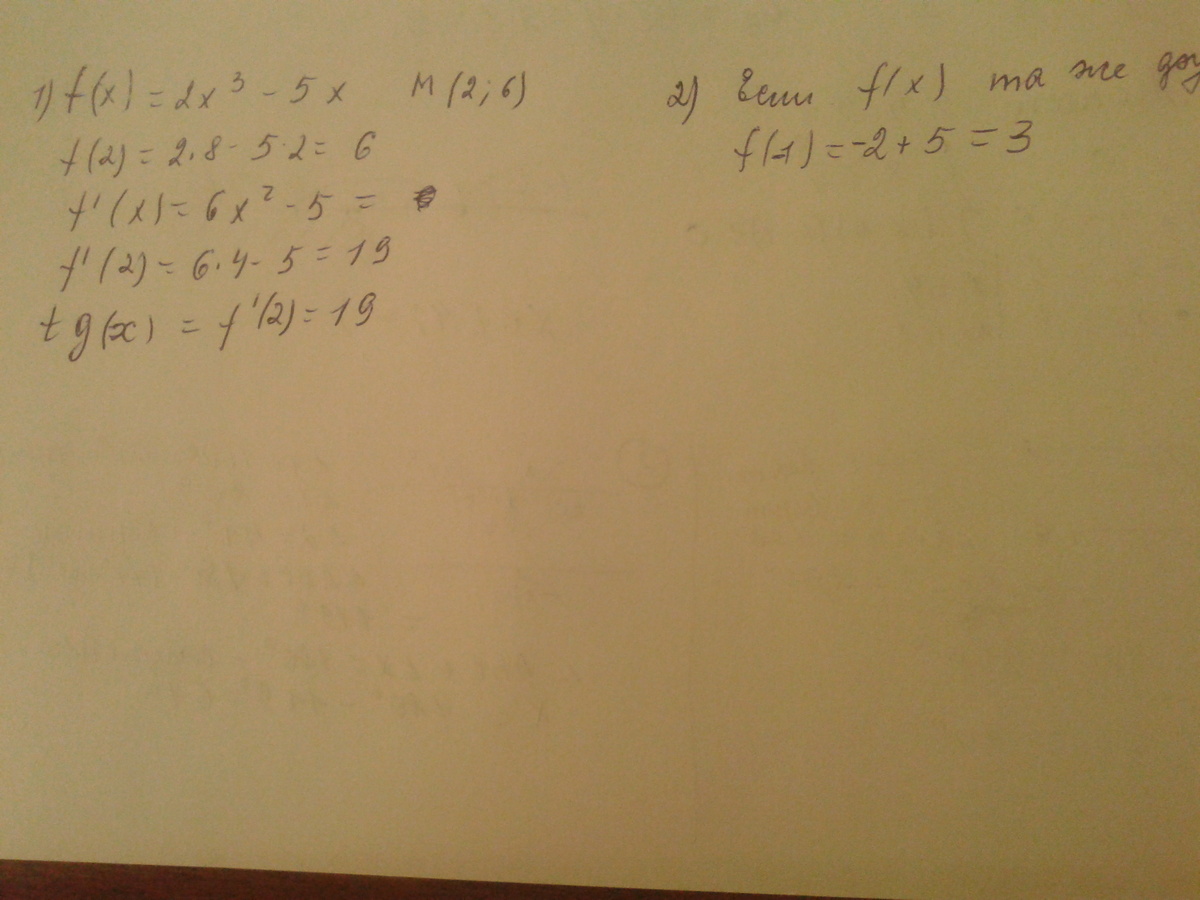 1) f(x) = 2x³ - 5x M (2; 6)
f(2) = 2·8 - 5·2 = 6
f'(x) = 6x² - 5 =
f'(2) = 6·4 - 5 = 19
tg(x) = f'(2) = 19
2) Если f(x) та же
f(-1) = -2 + 5 = 3